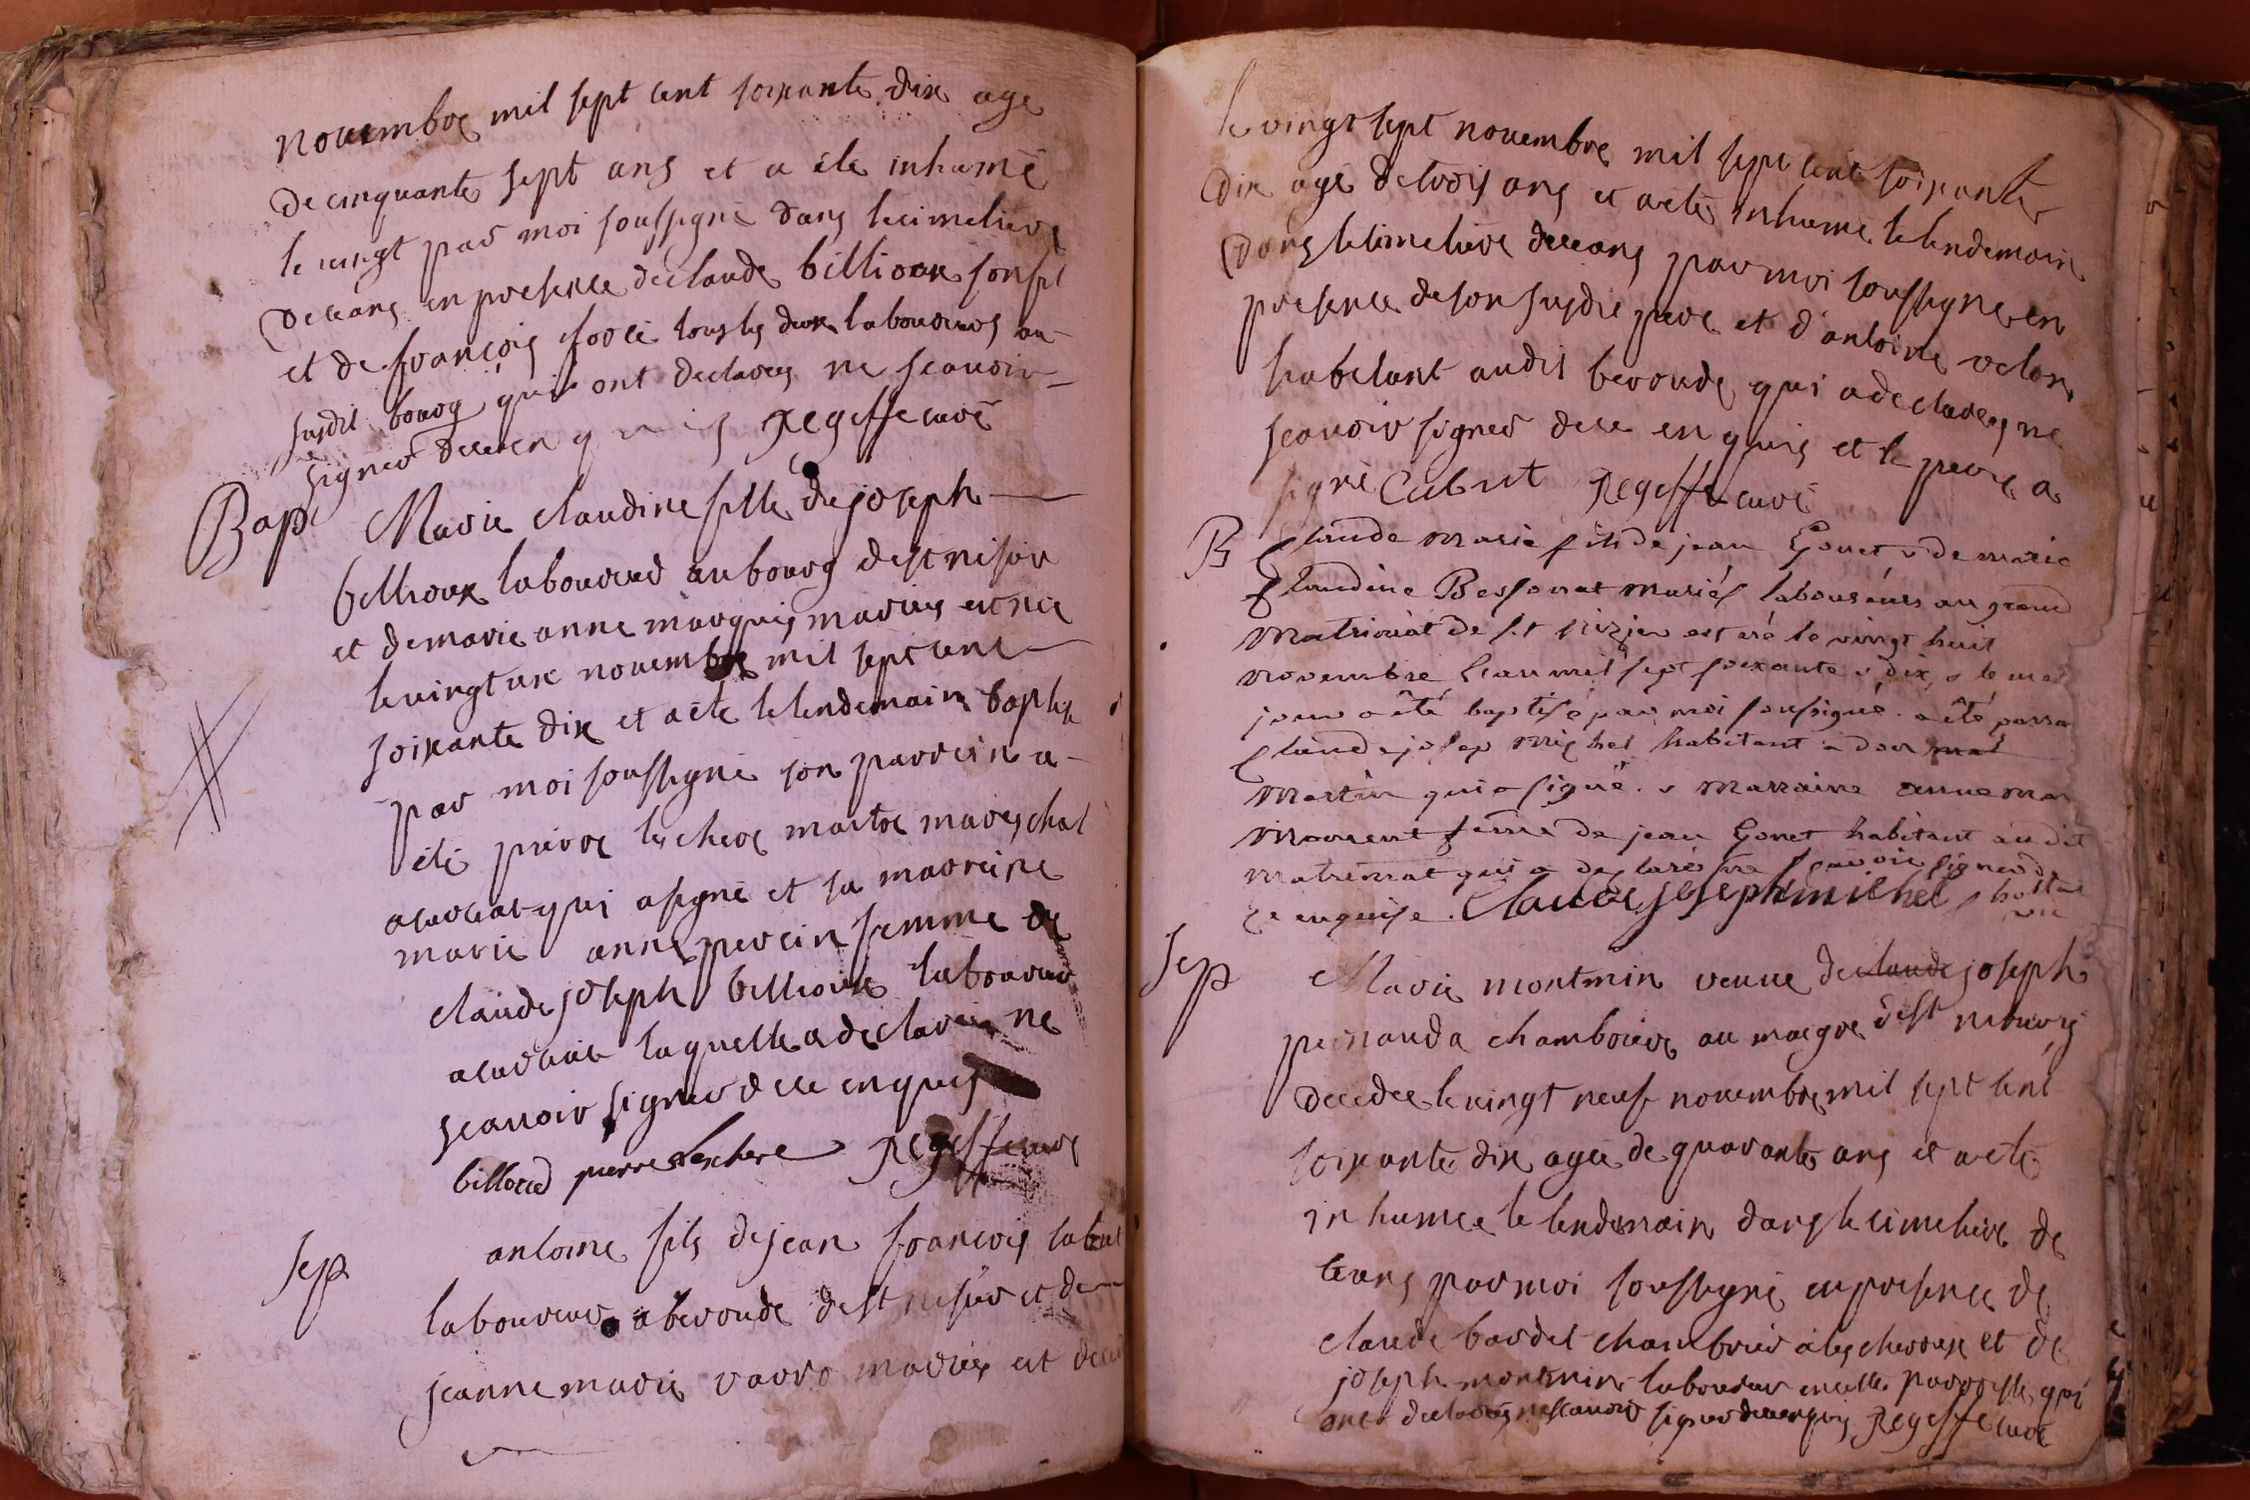 novembre mil sept cent soixante dix age
de cinquante sept ans et a ete inhumé
le vingt par moi soussigné dans le cimetiere
de ceans en presence de claude billioux son fil
et de françois tous les deux laboureurs au
susdit bourg qui ont declarés ne scavoir
signer de ce enquis Regeffe curé
Bap Marie claudine fille de joseph
billioux laboureur au bourg de st nisier
et de marie anne marquis mariés est née
le vingt un novembre mil sept cent
soixante dix et a ete le lendemain baptise
par moi soussigné son parrein a
été pierre maréchal
qui a signé et sa marreine
marie anne perrin femme de
claude joseph billioux laboureur
laquelle a declarée ne
scavoir signer de ce enquis
billoud pierre Regeffe curé
Sep antoine fils de jean françois cabut
laboureur a beronde de st nisier et de
jeanne marie varro mariés est decede
le vingt sept novembre mil sept cent soixante
dix agé de trois ans et a ete inhumé le lendemain
dans le cimetiere de ceans par moi soussigné en
presence de son susdit pere et d'antoine
habitant audit beronde qui a declarés ne
scavoir signer de ce enquis et le pere a
signé Cabut Regeffe curé
B Claude Marie fils de jean Gonet & de marie
Claudine Bessonat mariés laboureurs au grand
Matrignat de st nizier est né le vingt huit
novembre l'an mil sept soixante & dix, & le meme
jour a été baptisé par moi soussigné. a été parrain
Claude josep Michel habitant a
Martin qui a signé. & Marraine anne mar
femme de jean Gonet habitant audit
matrignat qui a declaré ne scavoir signer de
ce enquise. Claude joseph michel
Sep Marie montmin veuve de claude joseph
perraud a chamboiere au maigre de st
decedee le vingt neuf novembre mil sept cent
soixante dix agée de quarante ans et a ete
inhumee le lendemain dans le cimetiere de
ceans par moi soussigné en presence de
claude bardet chambrier a les cheroux et de
joseph montmin laboureur en cette parroisse qui
ont declarés ne scavoir signer de ce enquis Regeffe curé